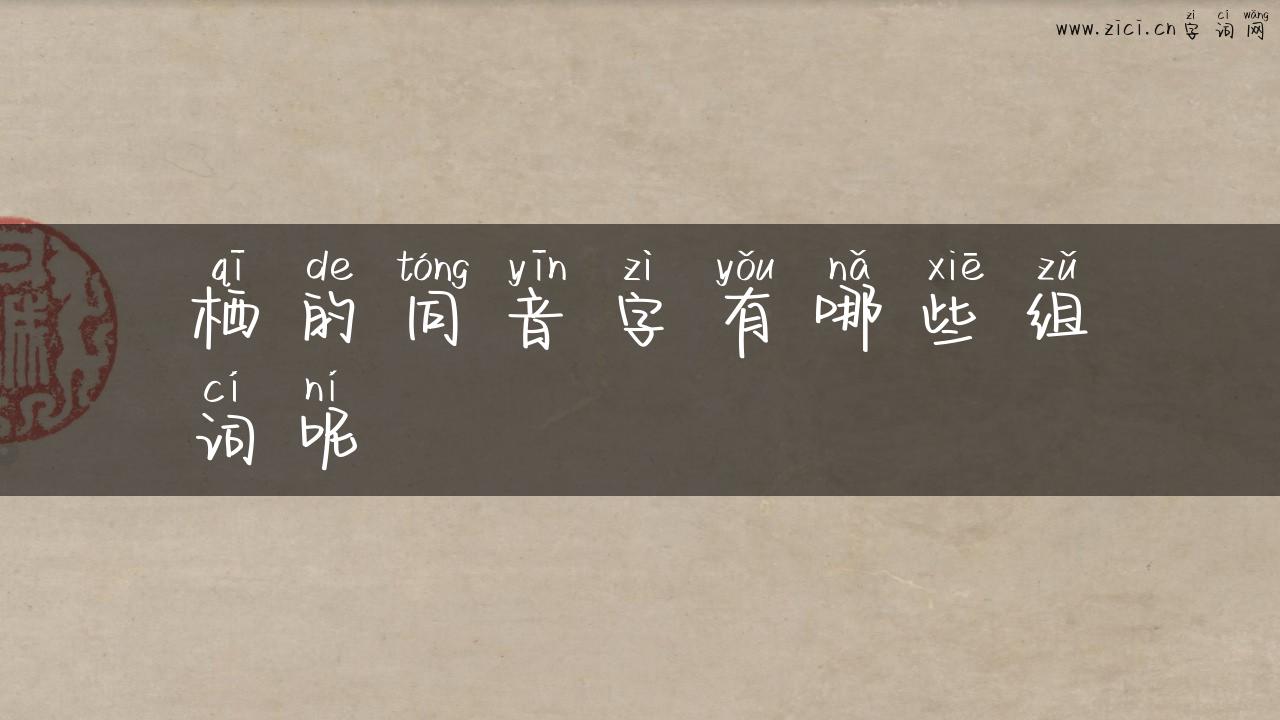 zì cí wǎng
www.zici.cn 字词网
qī de tóng yīn zì yǒu nǎ xiē zǔ
栖的同音字有哪些组
cí ní
词呢